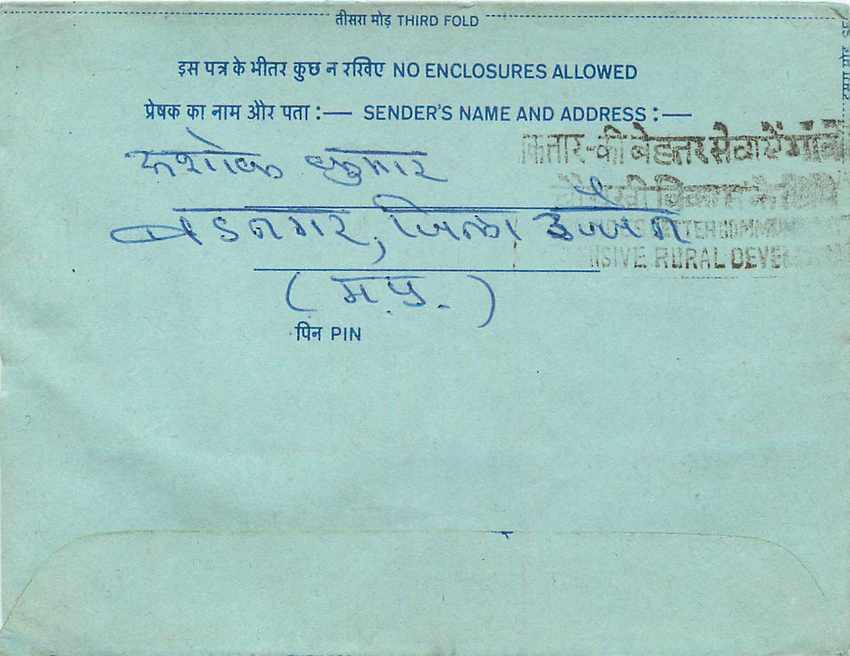 तीसरा मोड़ THIRD FOLD
इस पत्र के भीतर कुछ न रखिए NO ENCLOSURES ALLOWED
प्रेषक का नाम और पता :— SENDER'S NAME AND ADDRESS :—
अशोक कुमार
बडनगर, जिला उज्जैन
(म.प्र.)
पिन PIN
तार-की बेहतर सेवायें गांवों
विकास
RURAL DEVE